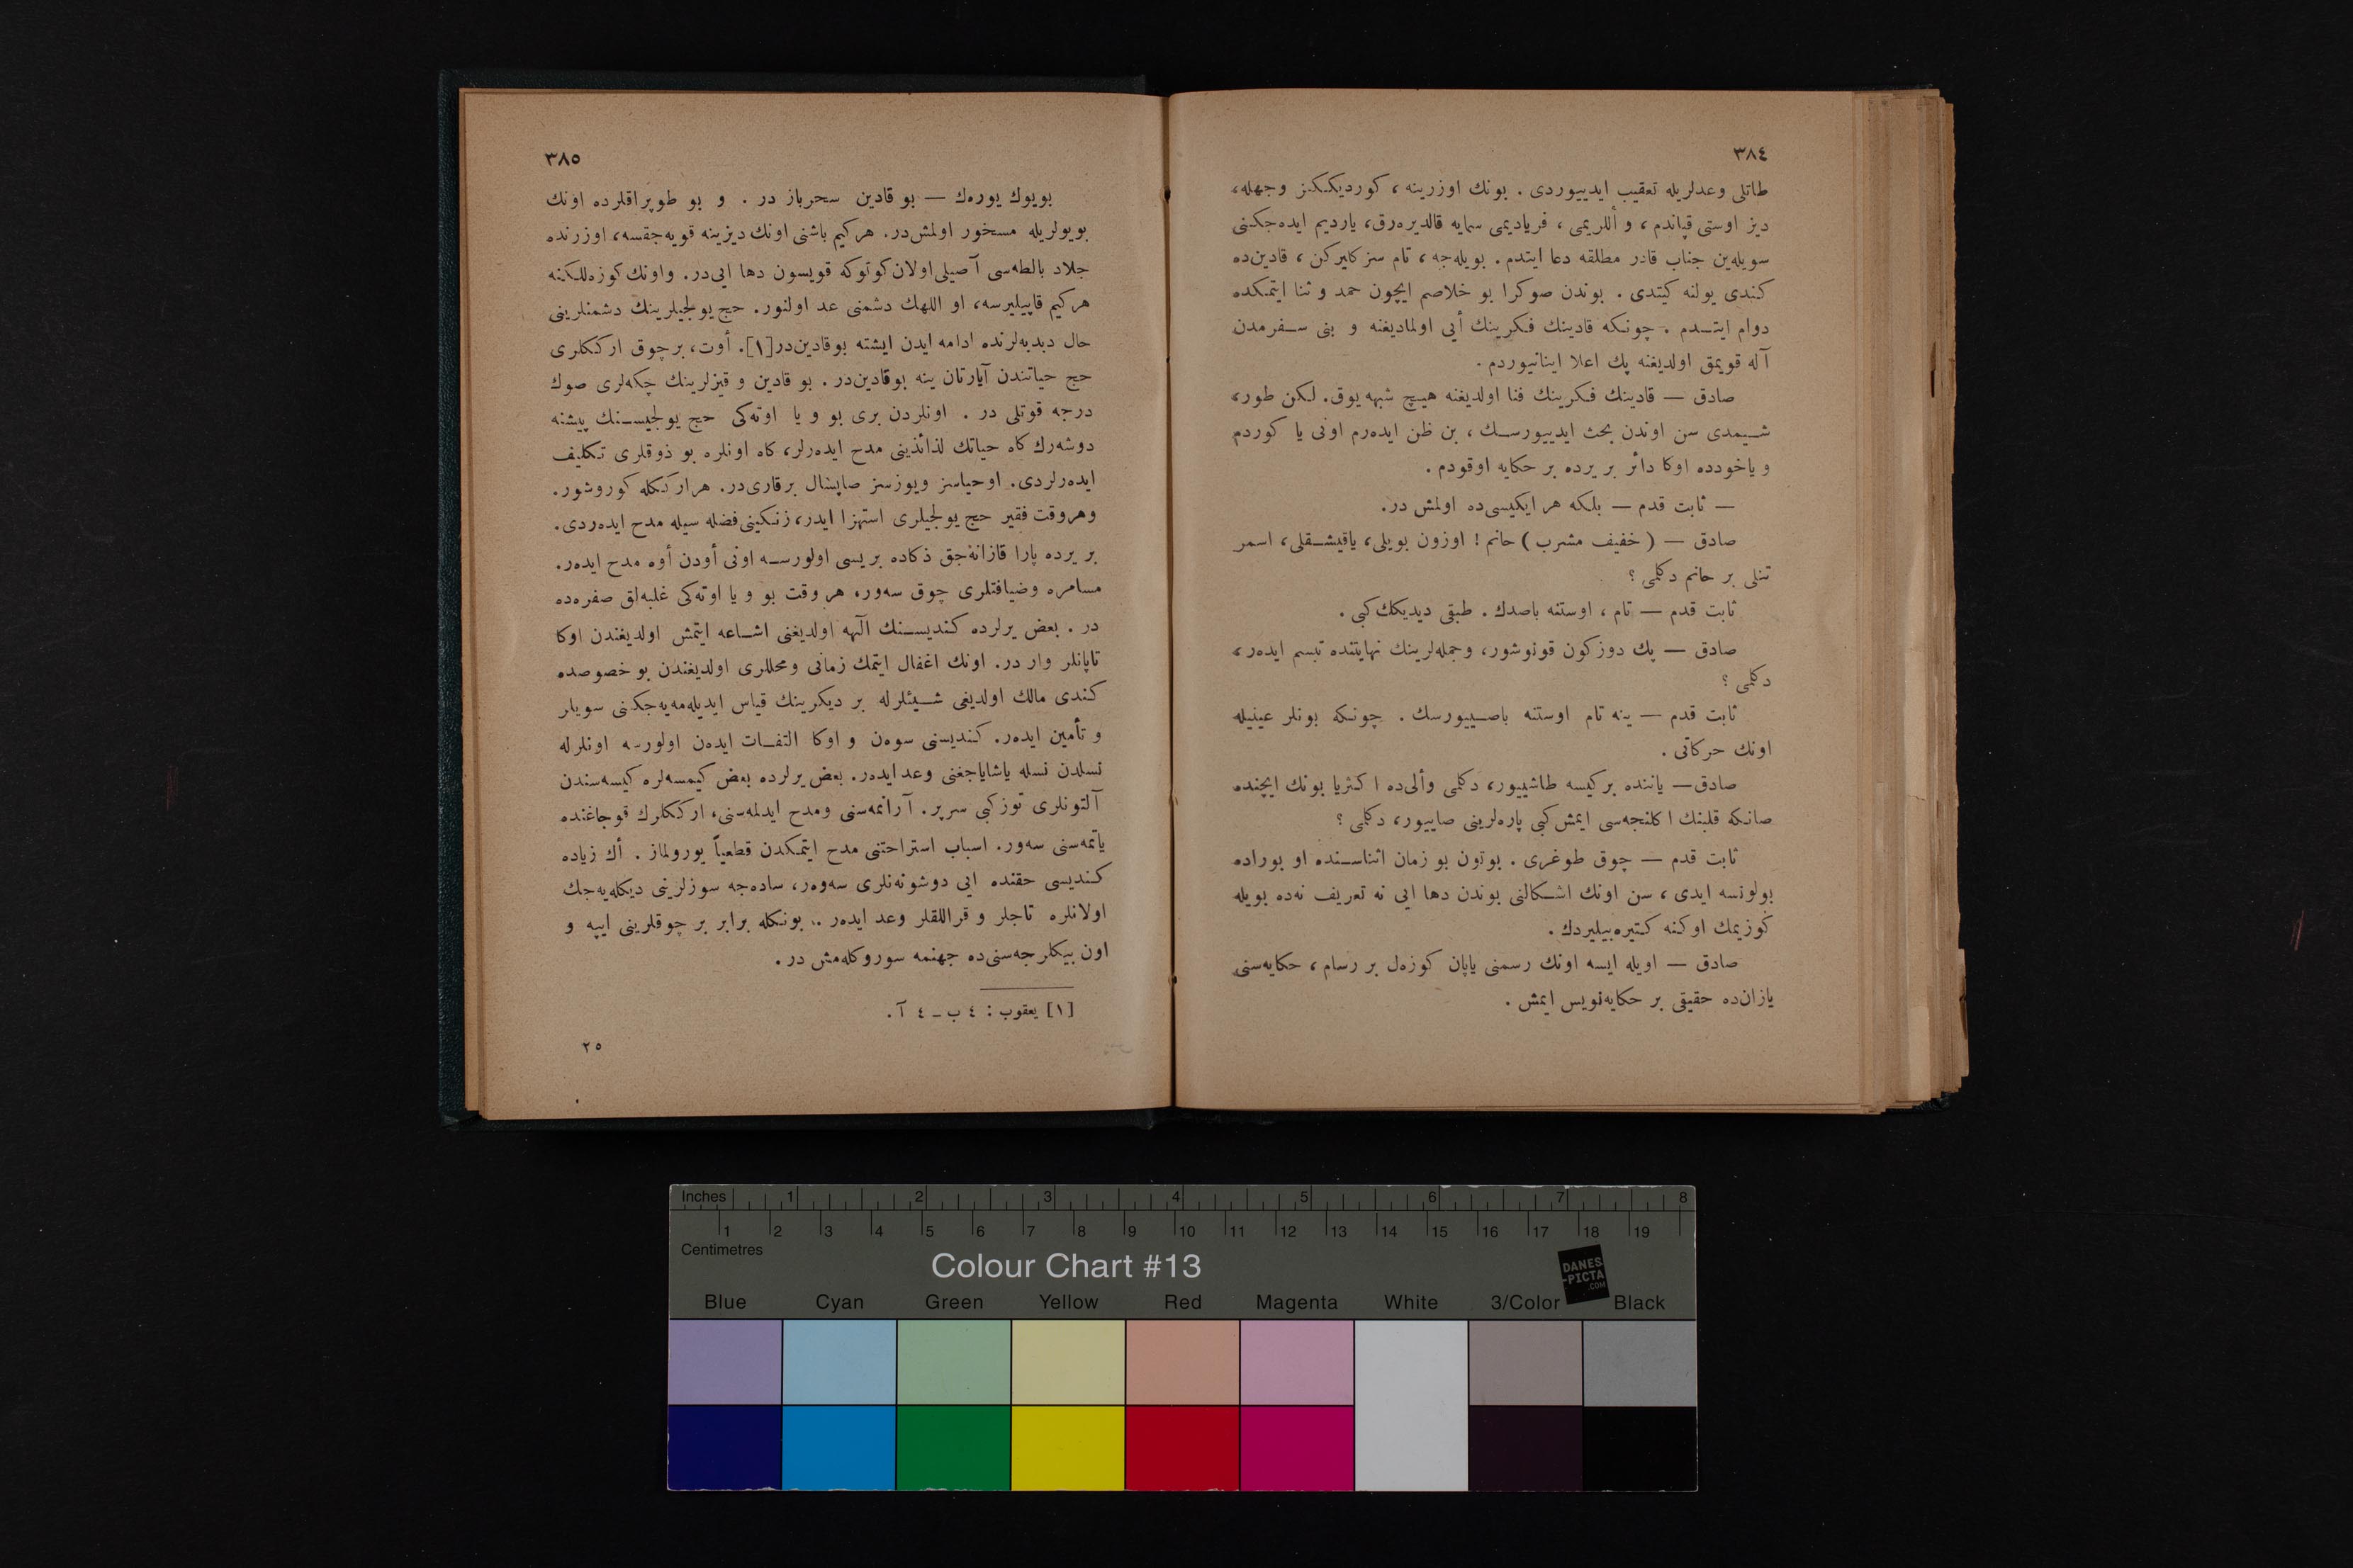 ٣٨٤
طاتلی وعدلریله تعقیب ایدییوردی . بونك اوزرینه ، کوردیککز وجهله،
دیز اوستی قپاندم ، و أللریمی ، فریادیمی سمایه قالدیره‌رق، یاردیم ایده‌جکنی
سویله‌ین جناب قادر مطلقه دعا ایتدم . بویله‌جه ، تام سز کلیرکن ، قادین‌ده
کندی یولنه کیتدی . بوندن صوکرا بو خلاصم ایچون حمد و ثنا ایتمکده
دوام ایتـدم . چونکه قادینك فکرینك أیی اولمادیغنه و بنی سـفرمدن
آله قویمق اولدیغنه پك اعلا اینانیوردم .
صادق — قادینك فکرینك فنا اولدیغنه هیچ شبهه یوق. لکن طور،
شـیمدی سن اوندن بحث ایدییورسـك ، بن ظن ایده‌رم اونی یا کوردم
و یاخودده اوکا دائر بر یرده بر حکایه اوقودم .
— ثابت قدم — بلکه هر ایکیسی‌ده اولمش در.
صادق — ( خفیف مشرب ) خانم ! اوزون بویلی، یاقیشـقلی، اسمر
تنلی بر خانم دکلمی ؟
ثابت قدم — تام ، اوستنه باصدك . طبقی دیدیکك کبی .
صادق — پك دوزکون قونوشور، وجمله‌لرینك نهایتنده تبسم ایده‌ر،
دکلمی ؟
ثابت قدم — ینه تام اوستنه باصـییورسك . چونکه بونلر عینیله
اونك حرکاتی .
صادق— یاننده بر کیسه طاشییور، دکلمی وألی‌ده ا کثریا بونك ایچنده
صانکه قلبنك ا کلنجه‌سی ایمش کبی پاره‌لرینی صاییور، دکلمی ؟
ثابت قدم — چوق طوغری . بوتون بو زمان اثناسـنده او بوراده
بولونسه ایدی ، سن اونك اشـکالنی بوندن دها ایی نه تعریف نه‌ده بویله
کوزیمك اوکنه کتیره‌بیلیردك .
صادق — اویله ایسه اونك رسمنی یاپان کوزه‌ل بر رسام ، حکایه‌سنی
یازان‌ده حقیقی بر حکایه‌نویس ایمش .
٣٨٥
بویوك یوره‌ك — بو قادین سحرباز در . و بو طوپراقلرده اونك
بویولریله مسخور اولمش‌در. هرکیم باشنی اونك دیزینه قویه‌جقسه، اوزرنده
جلاد بالطه‌سی آصیلی‌اولان کوتوکه قویسون دها ایی‌در. واونك کوزه‌للکنه
هرکیم قاپیلیرسه، او اللهك دشمنی عد اولنور. حج یولجیلرینك دشمنلرینی
حال دبدبه‌لرنده ادامه ایدن ایشته بوقادین‌در[١]. أوت، برچوق ارککلری
حج حیاتندن آیارتان ینه بوقادین‌در . بو قادین و قیزلرینك چکه‌لری صوك
درجه قوتلی در . اونلردن بری بو و یا اوته‌کی حج یولجیسـنك پیشنه
دوشه‌رك کاه حیاتك لذائذینی مدح ایده‌رلر، کاه اونلره بو ذوقلری تکلیف
ایده‌رلردی. اوحیاسز ویوزسز صاپشال برقاری‌در. هرارککله کوروشور.
وهروقت فقیر حج یولجیلری استهزا ایدر، زنکینی‌فضله سیله مدح ایده‌ردی.
بر یرده پارا قازانه‌جق ذکاده بریسی اولورسـه اونی أودن أوه مدح ایده‌ر.
مسامره وضیافتلری چوق سه‌ور، هر وقت بو و یا اوته‌کی غلبه‌لق صفره‌ده
در . بعض یرلرده کندیسـنك آلهه اولدیغنی اشـاعه ایتمش اولدیغندن اوکا
تاپانلر وار در. اونك اغفال ایتمك زمانی ومحللری اولدیغندن بو خصوصده
کندی مالك اولدیغی شـیئلرله بر دیکرینك قیاس ایدیله‌مه‌یه‌جکنی سویلر
و تأمین ایده‌ر. کندیسنی سوه‌ن و اوکا التفـات ایده‌ن اولورسه اونلرله
نسلدن نسله یاشایاجغنی وعد ایده‌ر. بعض یرلرده بعض کیمسه‌لره کیسه‌سندن
آلتونلری توز کبی سرپر. آرانمه‌سنی ومدح ایدلمه‌سنی، ارککلرك قوجاغنده
یاتمه‌سنی سه‌ور. اسباب استراحتنی مدح ایتمکدن قطعیاً یورولماز . أك زیاده
کندیسی حقنده ایی دوشونه‌نلری سه‌وه‌ر، ساده‌جه سوزلرینی دیکله‌یه‌جك
اولانلره تاجلر و قراللقلر وعد ایده‌ر .. بونکله برابر بر چوقلرینی ایپه و
اون بیکلرجه‌سنی‌ده جهنمه سوروکله‌مش در .
[١] یعقوب : ٤ ب ـ ٤ آ .
٢٥
Inches 1 2 3 4 5 6 7 8
1 2 3 4 5 6 7 8 9 10 11 12 13 14 15 16 17 18 19
Centimetres
Colour Chart #13
DANES
-PICTA
.COM
Blue Cyan Green Yellow Red Magenta White 3/Color Black